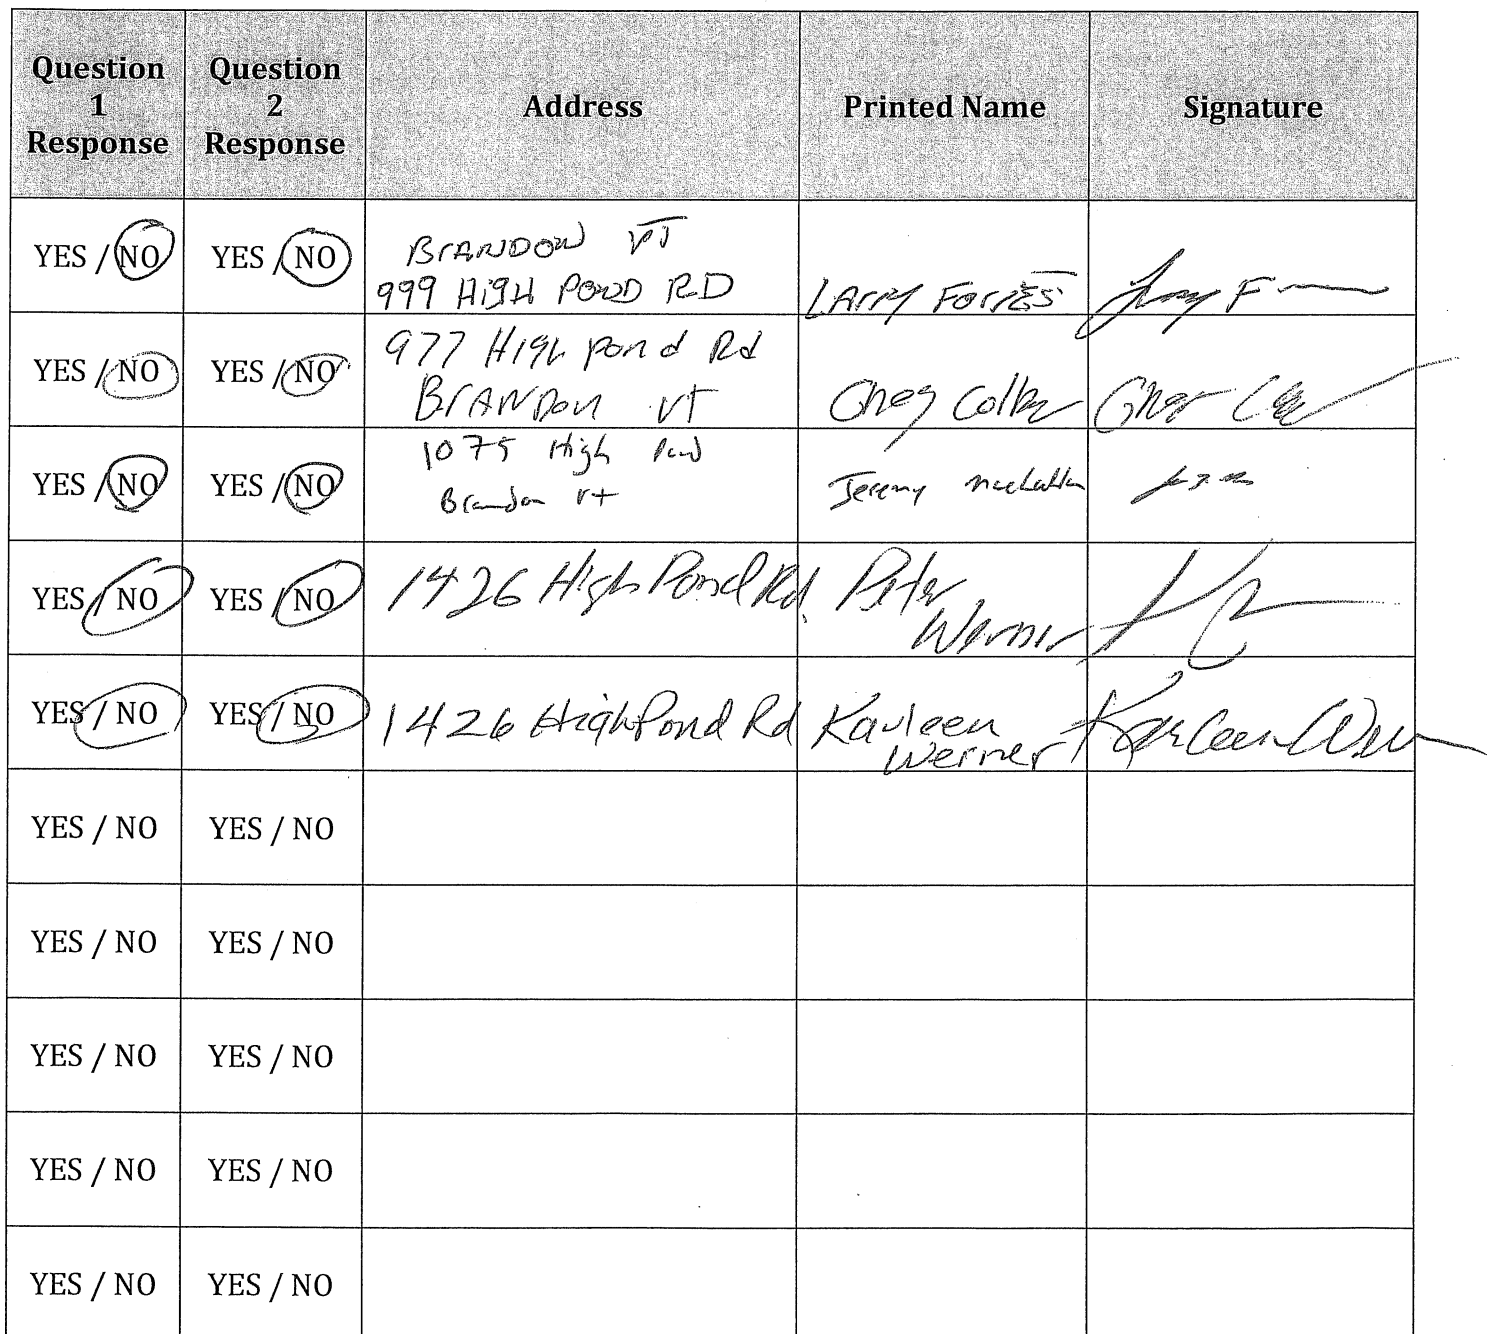 Question 1 Response
Question 2 Response
Address
Printed Name
Signature
YES / NO
YES / NO
BRANDON VT
999 HIGH POND RD
LARRY
YES / NO
YES / NO
977 High pond Rd
BRANDON VT
Colby
YES / NO
YES / NO
1075 High Pond
Brandon Vt
Jeremy
YES / NO
YES / NO
1426 High Pond Rd.
Peter
Werner
YES / NO
YES / NO
1426 High Pond Rd
Kayleen
Werner
YES / NO
YES / NO
YES / NO
YES / NO
YES / NO
YES / NO
YES / NO
YES / NO
YES / NO
YES / NO